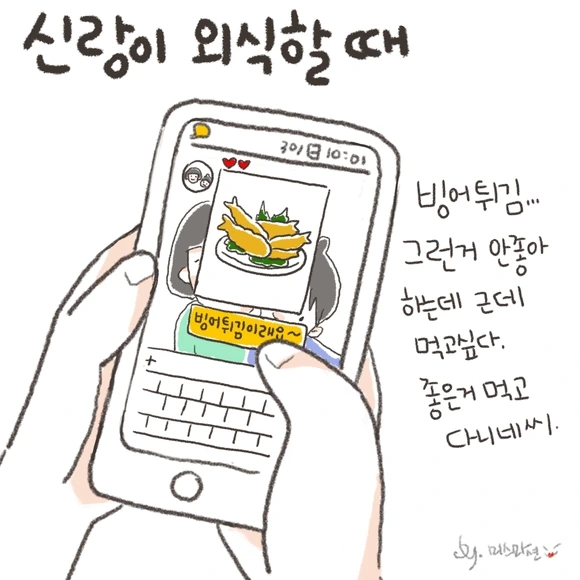 신랑이 외식할 때
301 10:01
빙어튀김이래요~
빙어튀김...
그런거 안좋아
하는데 근데
먹고싶다.
좋은거 먹고
다니네씨.
by.